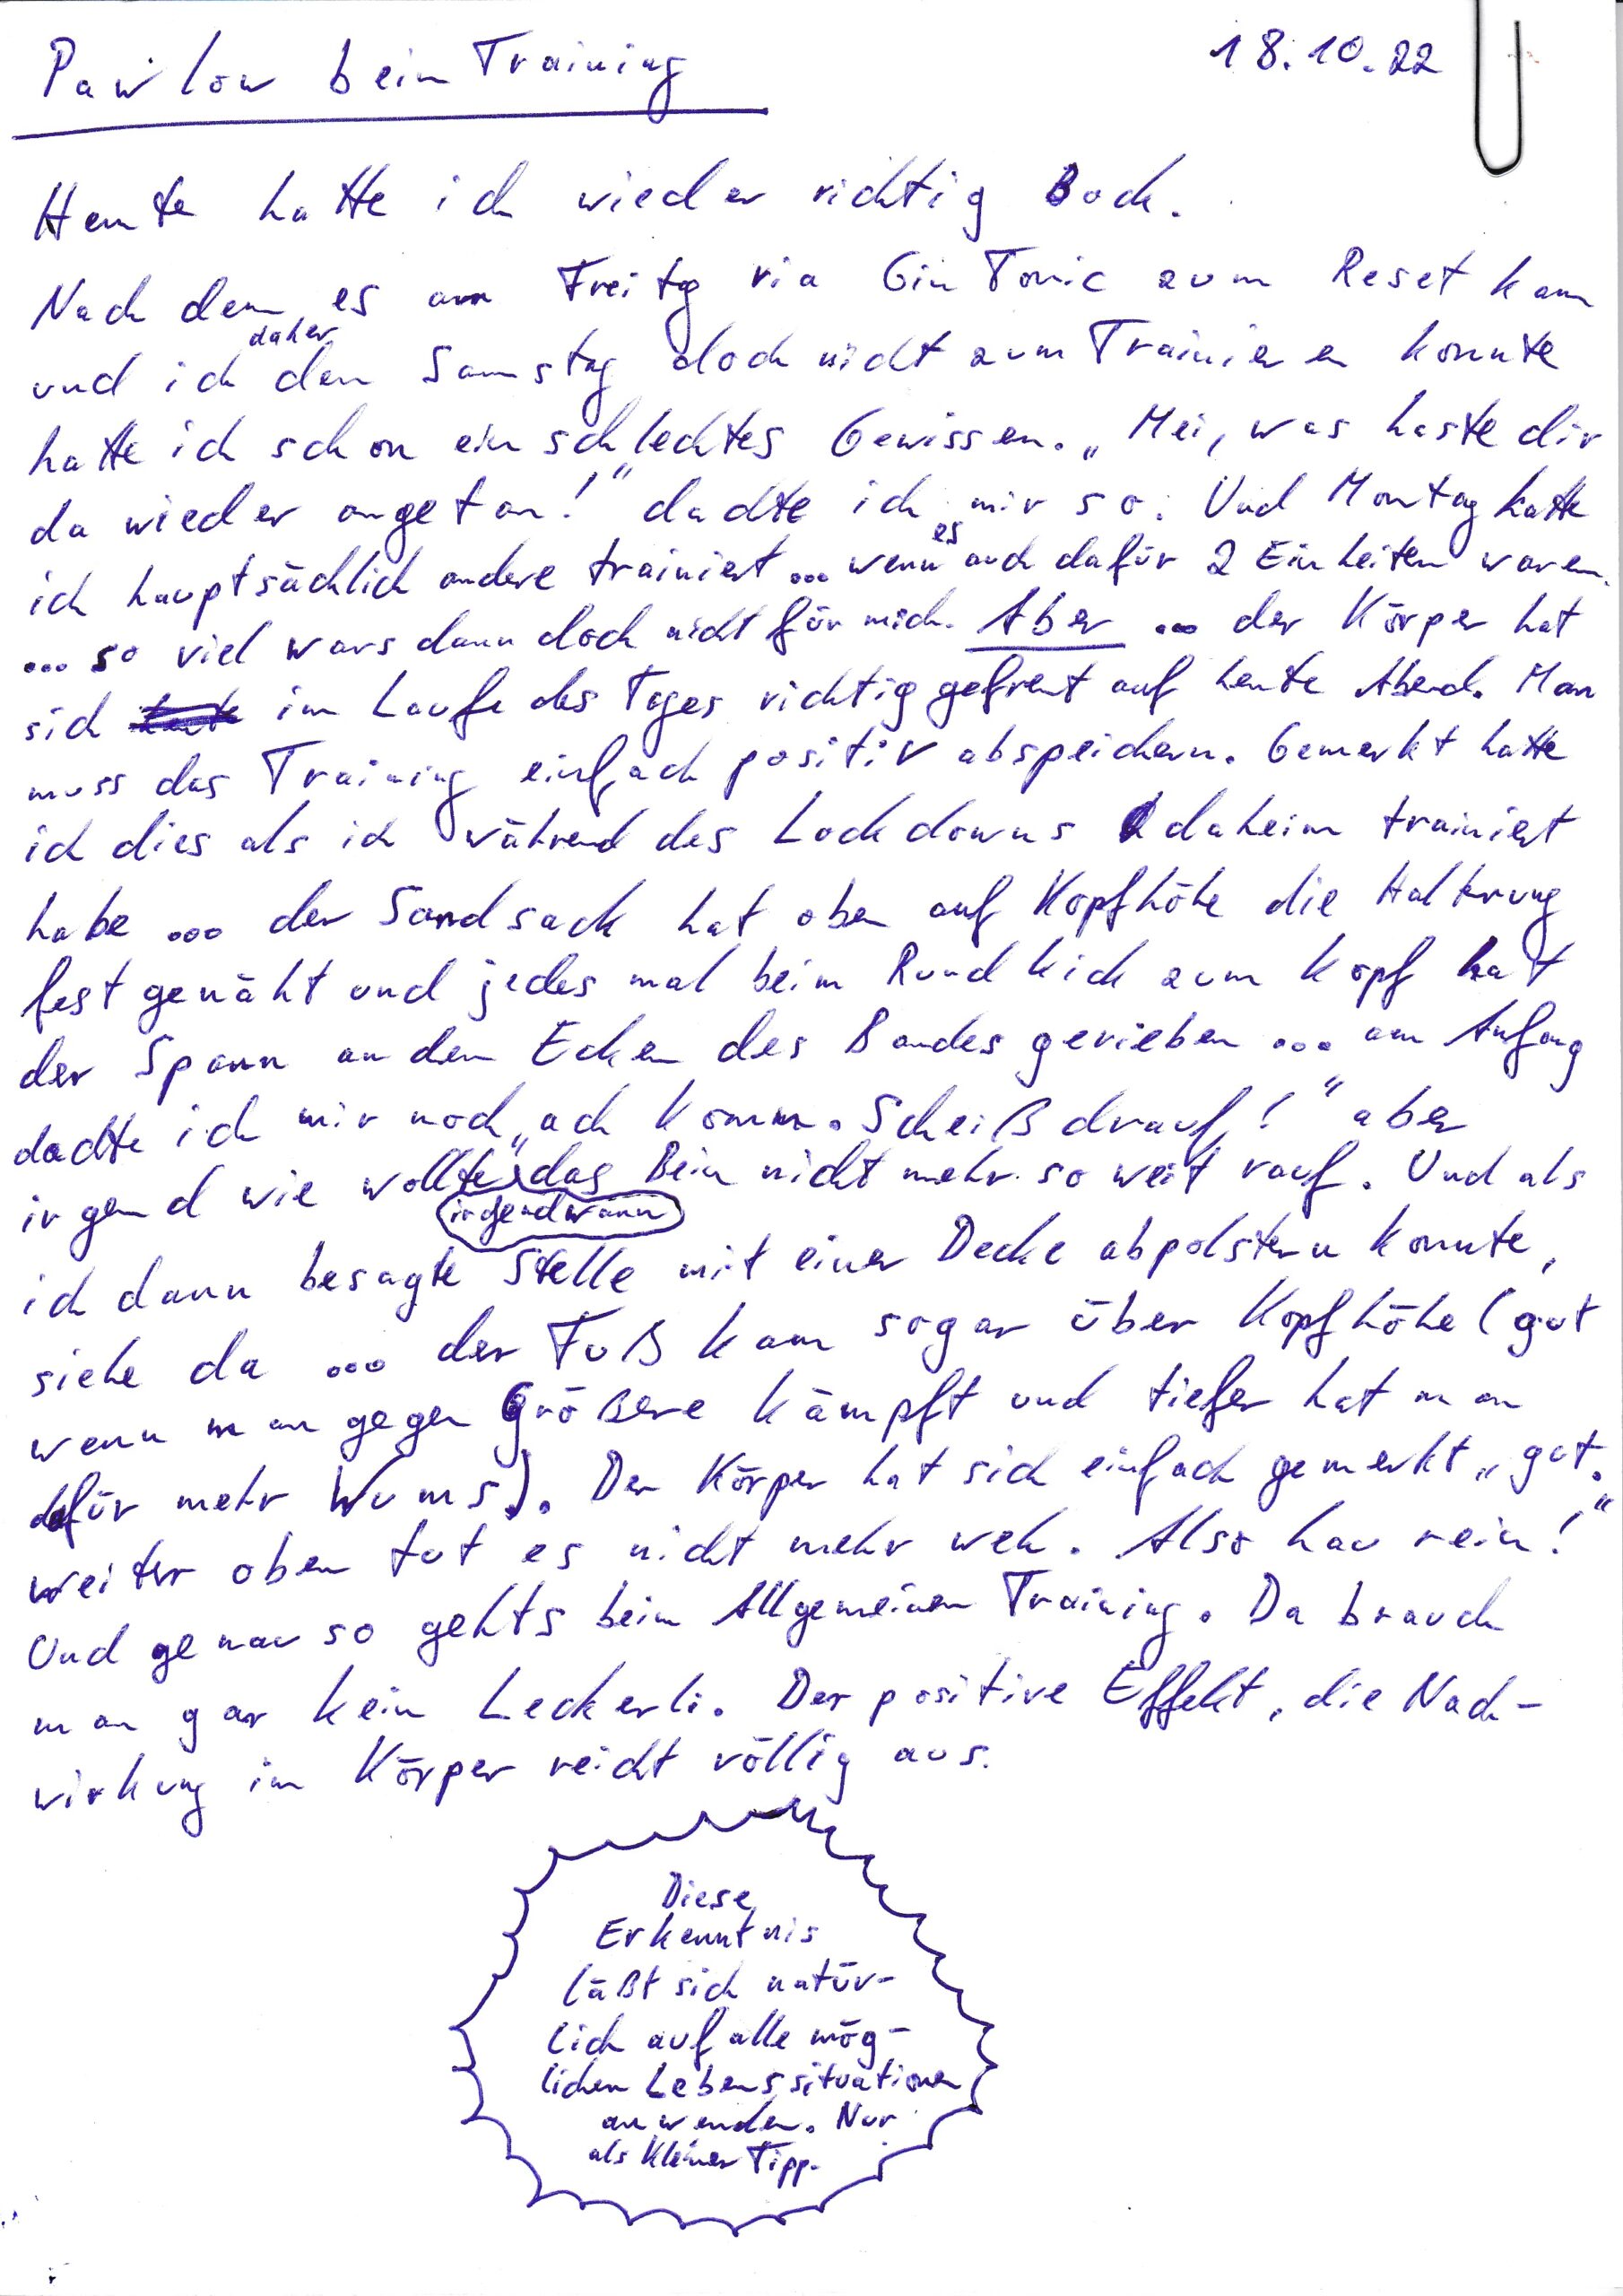 Pawlow beim Training
18.10.22
Heute hatte ich wieder richtig Bock.
Nach dem es am Freitg via Gin Tonic zum Reset kam
und ich daher den Samstag doch nicht zum Trainieren konnte
hatte ich schon ein schlechtes Gewissen. „Mei, was haste dir
da wieder angetan!“ dachte ich mir so. Und Montag hatte
ich hauptsächlich andere trainiert ... wenn es auch dafür 2 Einheiten waren.
... so viel wars dann doch nicht für mich. Aber ... der Körper hat
sich im Laufe des Tages richtig gefreut auf heute Abend. Man
muss das Training einfach positiv abspeichern. Gemerkt hatte
ich dies als ich während des Lockdowns daheim trainiert
habe ... der Sandsack hat oben auf Kopfhöhe die Halterung
fest genäht und jedes mal beim Rund Kick zum Kopf hat
der Spann an den Ecken des Bandes gerieben ... am Anfang
dachte ich mir noch „ach komm. Scheiß drauf!“ aber
irgend wie wollte irgendwann das Bein nicht mehr so weit rauf. Und als
ich dann besagte Stelle mit einer Decke abpolstern konnte,
siehe da ... der Fuß kam sogar über Kopfhöhe (gut
wenn man gegen Größere kämpft und tiefer hat man
dafür mehr Wums). Der Körper hat sich einfach gemerkt „gut.
weiter oben tut es nicht mehr weh. Also hau rein!“
Und genau so gehts beim Allgemeinen Training. Da brauch
man gar kein Leckerli. Der positive Effekt, die Nach-
wirkung im Körper reicht völlig aus.
Diese
Erkenntnis
läßt sich natür-
lich auf alle mög-
lichen Lebenssituationen
anwenden. Nur
als kleiner Tipp.